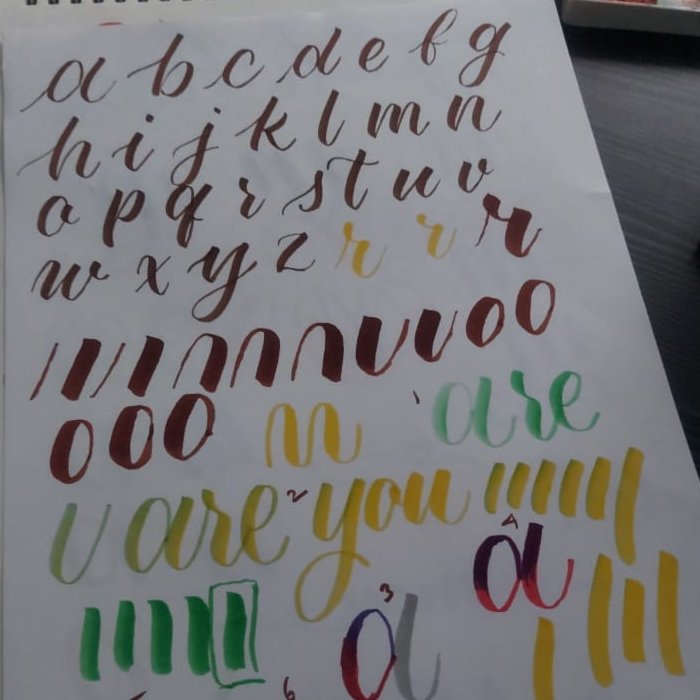 a b c d e f g
h i j k l m n
o p q r s t u v
w x y z r r r
n are
v are 2 you
4 a
3 a
6